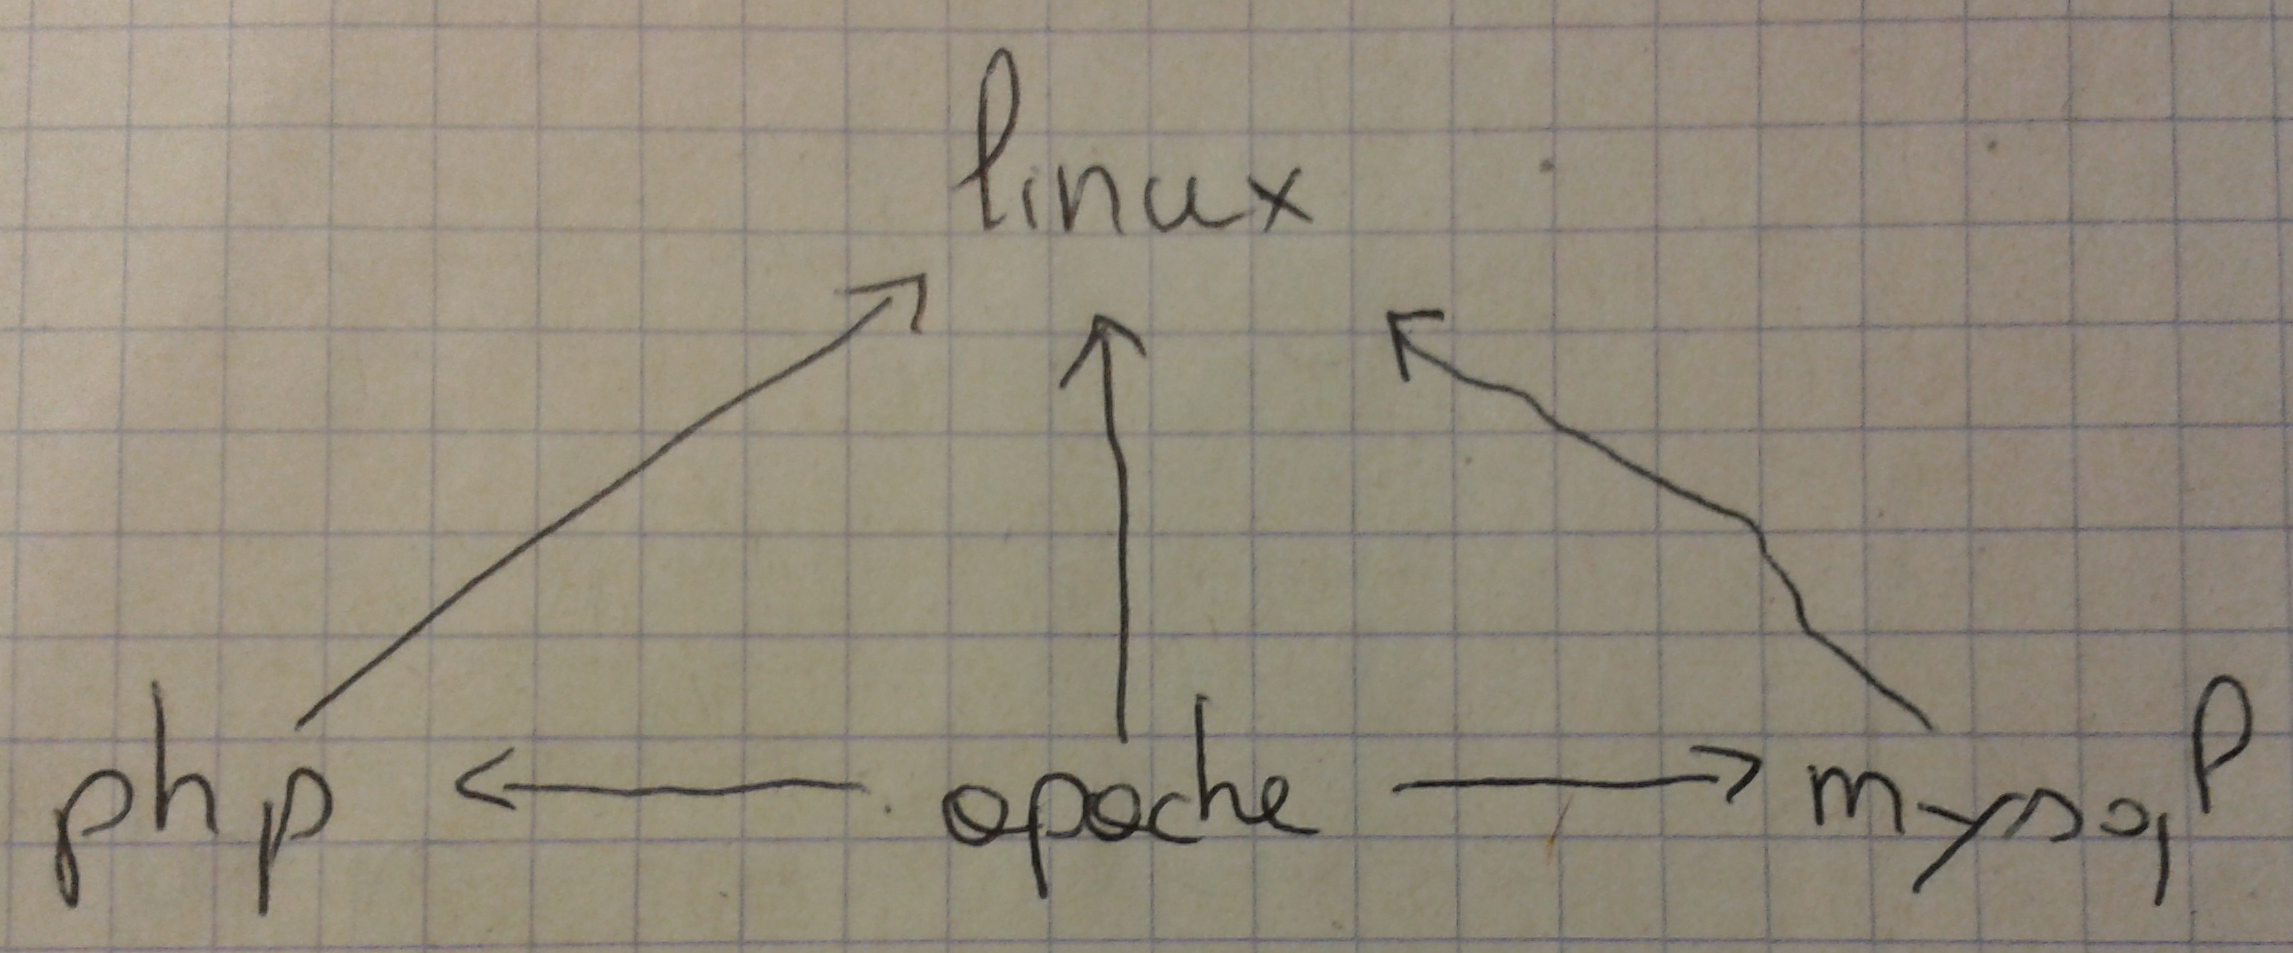 linux
php apache mysql